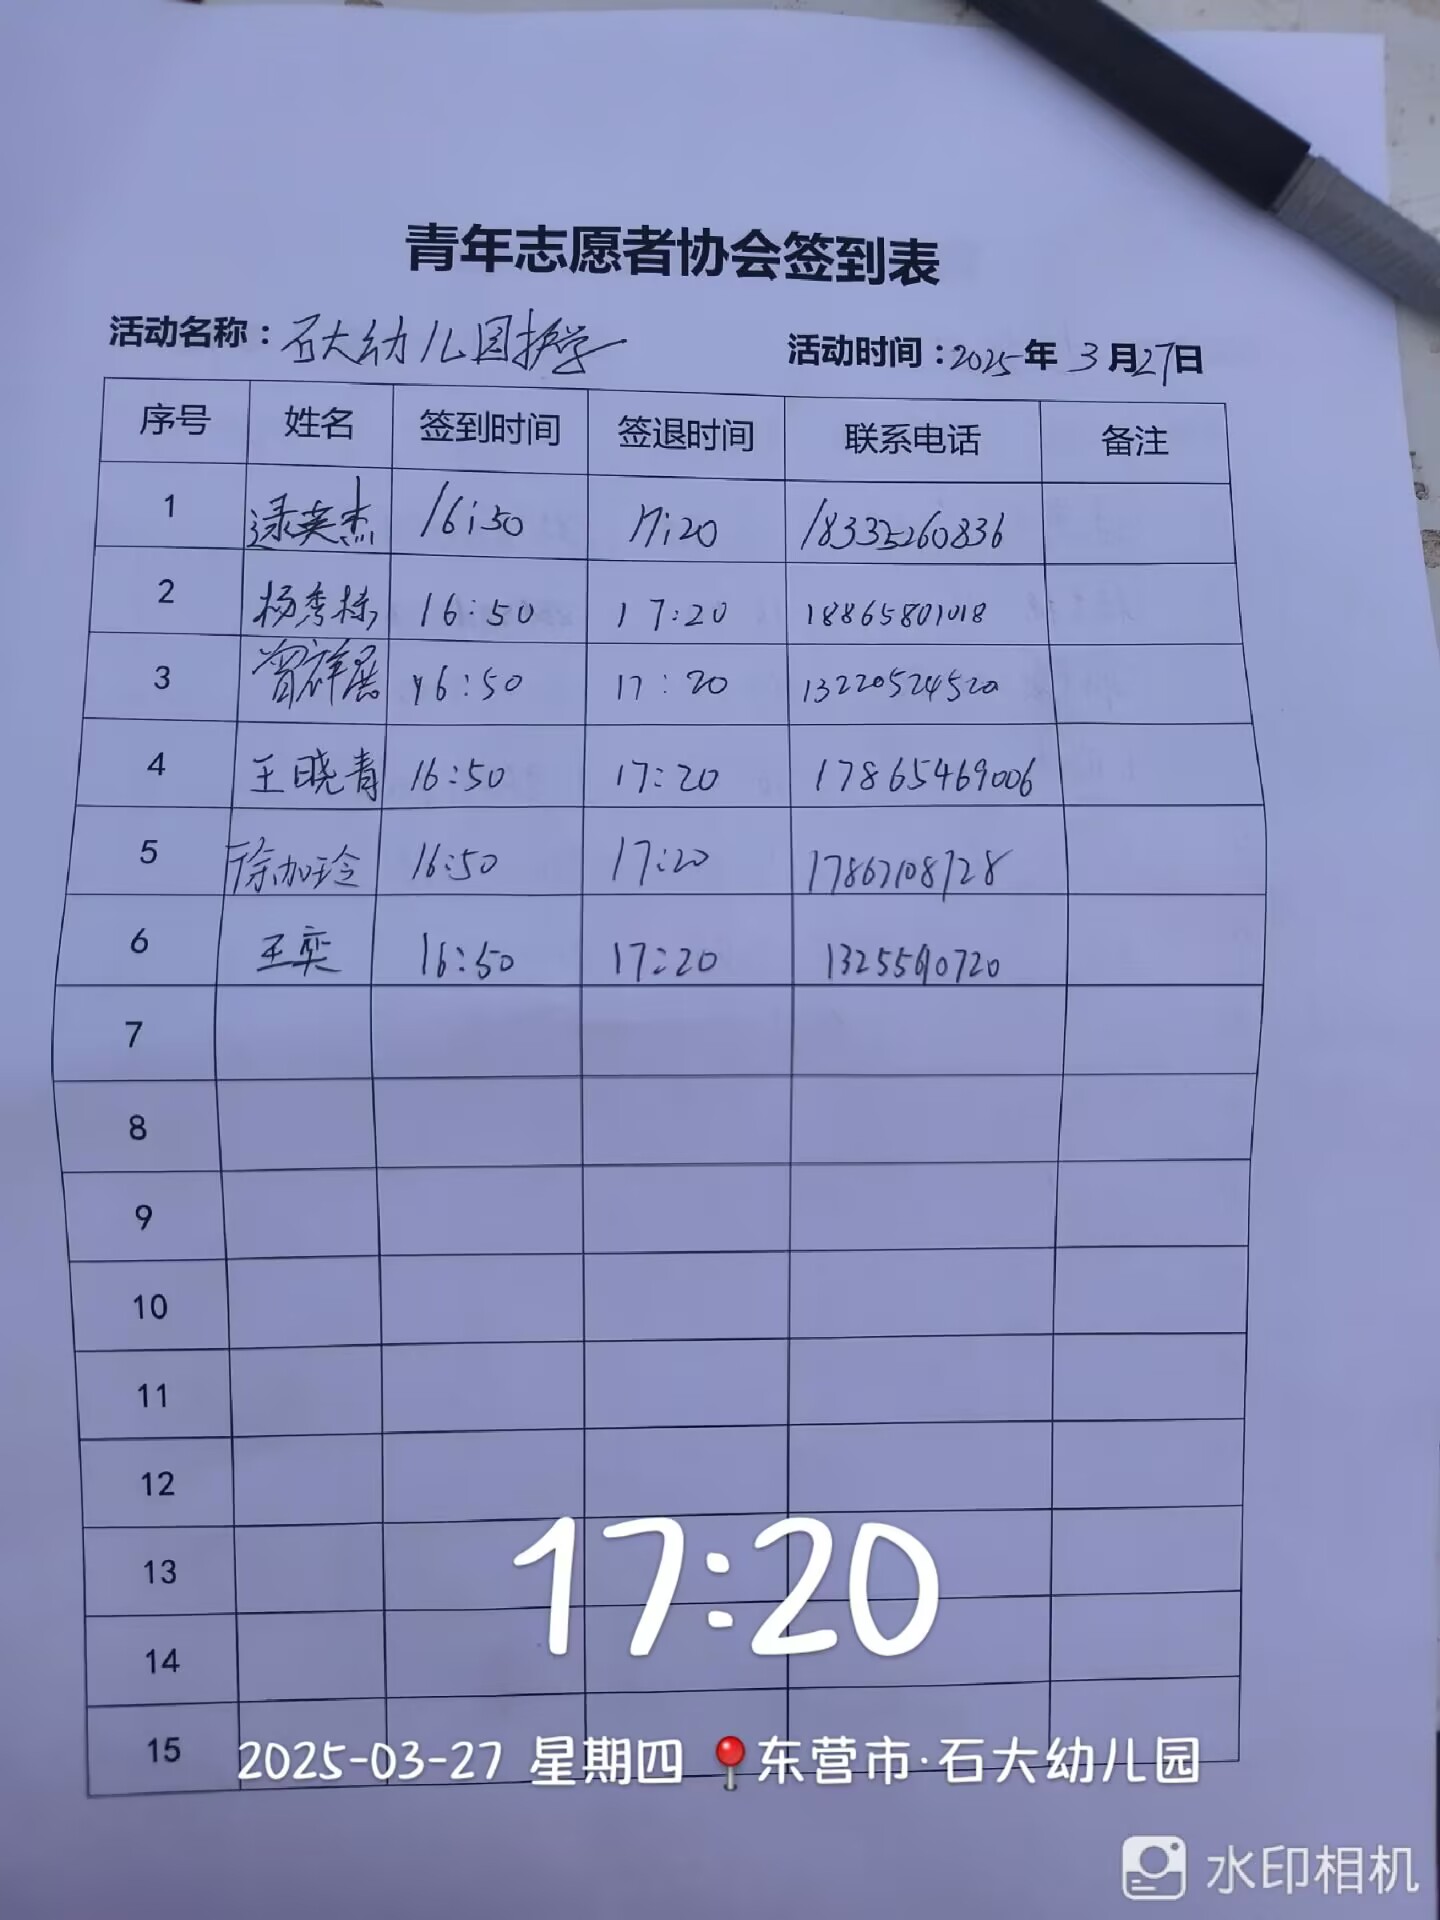 青年志愿者协会签到表
活动名称：石大幼儿园护学 活动时间：2025年3月27日
序号 姓名 签到时间 签退时间 联系电话 备注
1 逯英杰 16:50 17:20 18335260836
2 杨秀栋 16:50 17:20 18865801018
3 曾祥展 16:50 17:20 13220524520
4 王晓青 16:50 17:20 17865469006
5 徐加玲 16:50 17:20 17867108728
6 王奕 16:50 17:20 1325590720
7
8
9
10
11
12
13
14
15
17:20
2025-03-27 星期四 东营市·石大幼儿园
水印相机